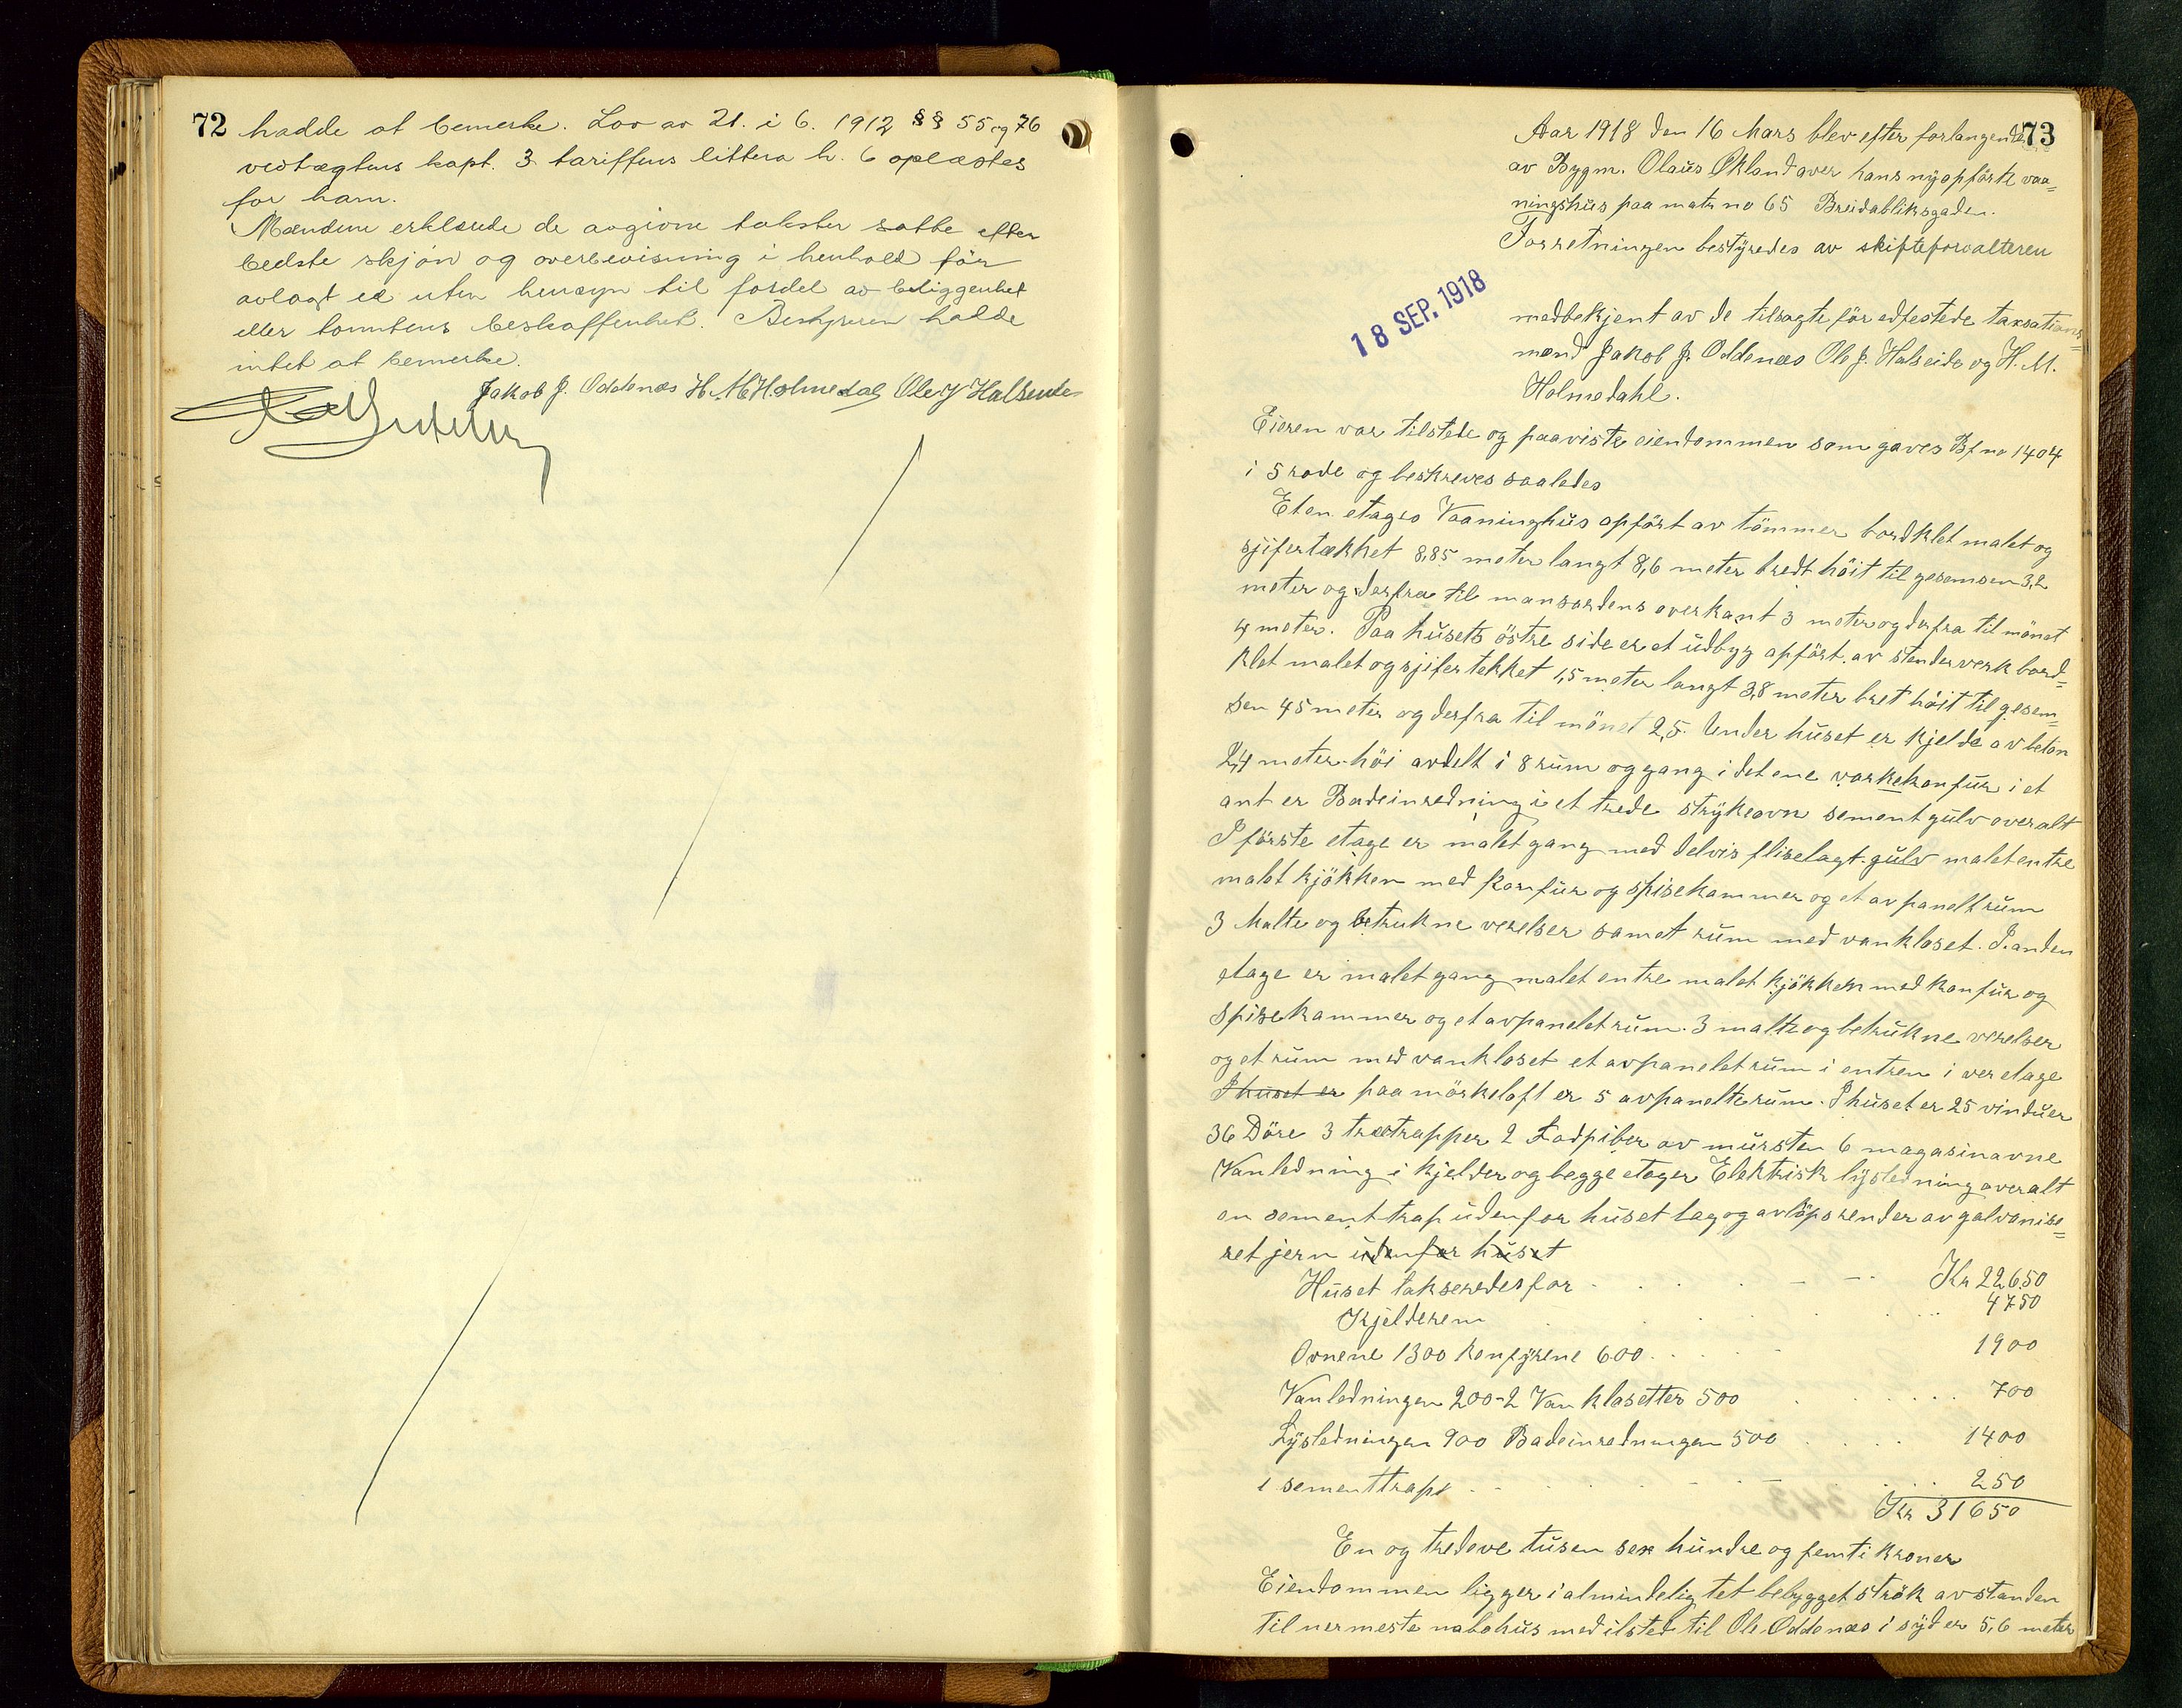 72 hadde at bemerke. Lov av 21. i 6. 1912 §§ 55 og 76
vedtægtens kapt. 3 tariffens littera h. 6 oplæstes
for ham.
Mændene erklærede de avgivne takster satte efter
bedste skjøn og overbevisning i henhold før
avlagt ed uten hensyn til fordel av beliggenhet
eller tomtens beskaffenhet. Bestyreren hadde
intet at bemerke.
Jakob J. Oddenæs H. M. Holmedal Ole J Halseide
73
Aar 1918 den 16 Mars blev efter forlangende
av Bygm. Olaus Økland over hans nyopførk vaa=
ningshus paa matr no 65 Breidabliksgaden.
Forretningen bestyredes av skifteforvalteren
18 SEP. 1918
medbekjent av de tilsagte før edfestede taxsations=
mænd Jakob J. Oddenæs Ole J. Halseide og H. M.
Holmedahl.
Eieren var tilstede og paaviste eiendommen som gaves Bf no 1404
i 5 rode og beskreves saaledes
Et en etages Vaaninghus opført av tømmer bordklet malet og
sjifertækket 8,85 meter langt 8,6 meter bredt høit til gesemsen 3,2
meter og derfra til mansardens overkant 3 meter og derfra til mønet
4 meter. Paa husets østre side er et udbyg opført av stenderverk bord=
klet malet og sjifertekket 1,5 meter langt 3,8 meter bret høit til gesem=
sen 45 meter og derfra til mønet 2,5. Under huset er kjelde av beton
2,4 meter høi avdelt i 8 rum og gang i det ene vaskekonfur i et
ant er Badeinredning i et trede strykeovn sement gulv overalt
I første etage er malet gang med delvis fliselagt gulv malet entre
malet kjøkken med konfur og spisekammer og et avpanelt rum
3 Malte og betrukne verelser samet rum med vankloset. I anden
etage er malet gang malet entre malet kjøkken med konfur og
spisekammer og et avpanelet rum. 3 malte og betrukne verelser
og et rum med vankloset et avpanelet rum i entren i ver etage
I huset er paa mørkeloft er 5 avpanelte rum. I huset er 25 vinduer
36 Døre 3 trætrapper 2 Fadpiber av mursten 6 magasinavne
Vanledning i kjelder og begge etager Elektrisk lysledning overalt
en sement trap udenfor huset tag og avløpsrender av galvanise=
ret jern udenfor huset
Huset takseredes for Kr 22650
Kjelderem 4750
Ovnene 1300 konfyrene 600 1900
Vanledningen 200 - 2 Van klosetter 500 700
Lysledningen 900 Badeinredningen 500 1400
1 sementtrap 250
Kr 31650
En og tredeve tusen sex hundre og femti kroner
Eiendommen ligger i almindelig tet bebygget strøk avstanden
til nermeste nabohus med ilsted til Ole Oddenæs i syd er 5,6 meter